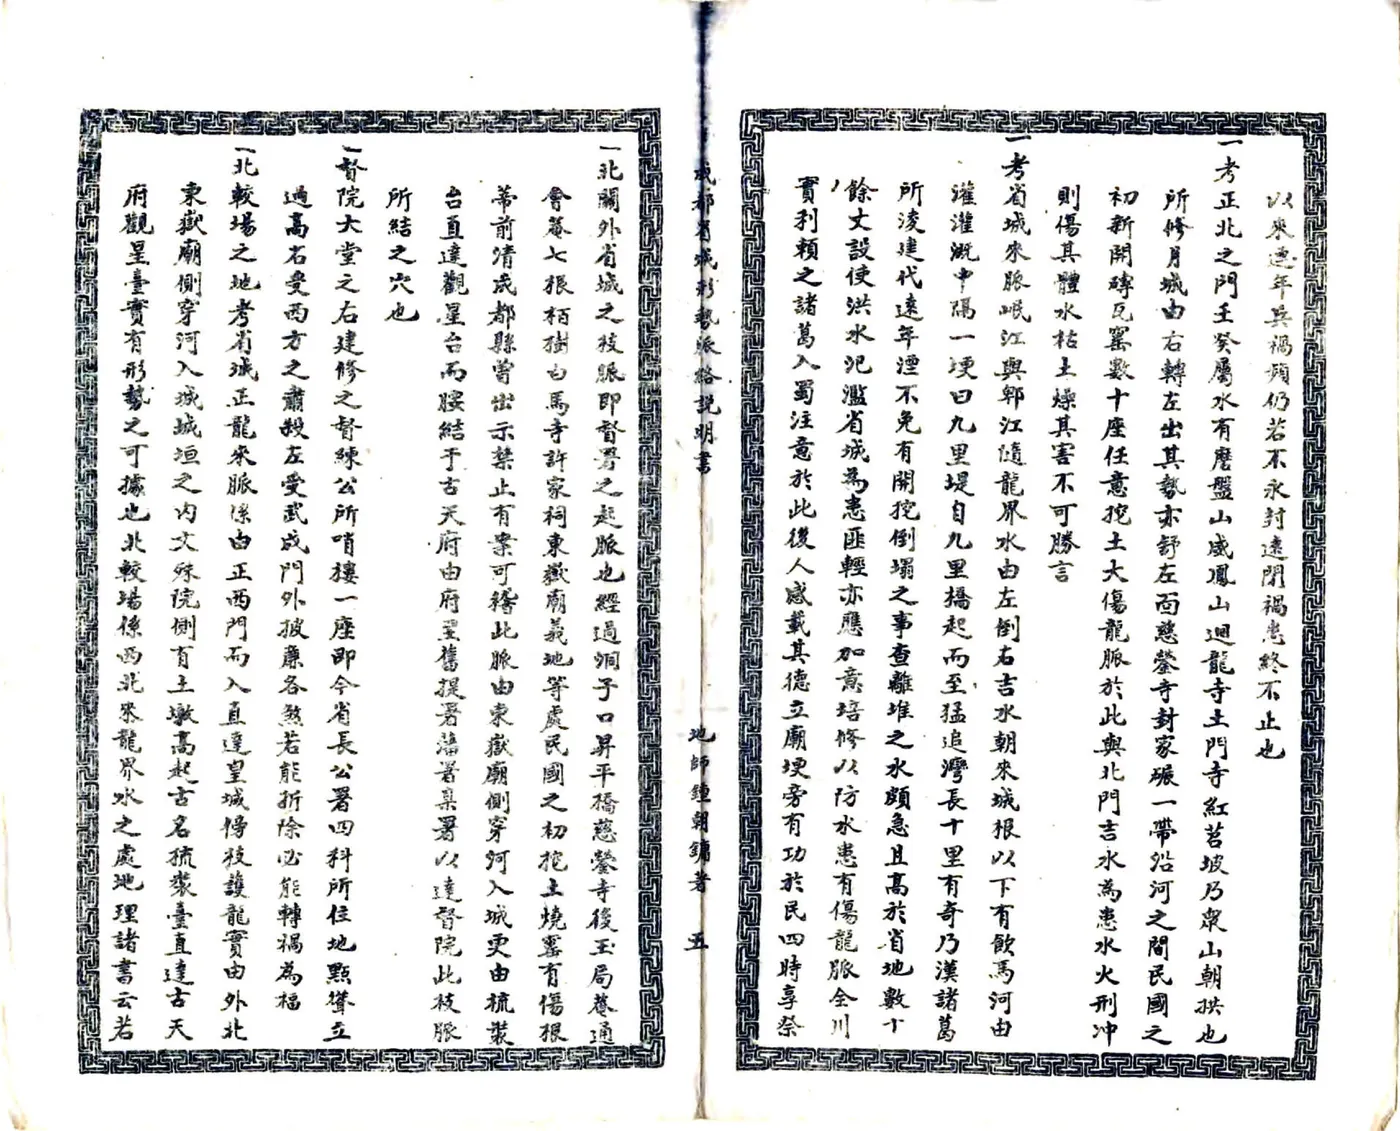 以來連年兵禍頻仍若不永封遠閉禍患終不止也
一考正北之門壬癸屬水有磨盤山威鳳山迴龍寺土門寺紅苕坡乃衆山朝拱也
所修月城由右轉左出其勢亦舒左面慈鎣寺封家碾一帶沿河之間民國之
初新開磚瓦窰數十座任意挖土大傷龍脈於此與北門吉水為患水火刑冲
則傷其體水枯土燥其害不可勝言
一考省城來脈岷江與郫江隨龍界水由左倒右吉水朝來城根以下有飲馬河由
灌灌溉中隔一埂曰九里堤自九里橋起而至猛追灣長十里有奇乃漢諸葛
所淩建代遠年湮不免有開挖倒塌之事查離堆之水頗急且高於省地數十
餘丈設使洪水氾濫省城為患匪輕亦應加意培修以防水患有傷龍脈全川
實利賴之諸葛入蜀注意於此後人感載其德立廟埂旁有功於民四時享祭
成都省城形勢脈絡説明書
地師鍾朝鏞著 五
一北關外省城之枝脈即督署之起脈也經過洞子口昇平橋慈鎣寺後玉局菴通
會菴七根栢樹白馬寺許家祠東嶽廟義地等處民國之初挖土燒窰有傷根
蒂前清成都縣曾出示禁止有案可稽此脈由東嶽廟側穿河入城更由梳裝
台直達觀星台而腰結于古天府由府至舊提署藩署臬署以達督院此枝脈
所結之穴也
一督院大堂之右建修之督練公所哨樓一座即今省長公署四科所住地點聳立
過高右受西方之肅殺左受武成門外披廉各煞若能折除必能轉禍為福
一北較場之地考省城正龍來脈係由正西門而入直達皇城傍枝護龍實由外北
東嶽廟側穿河入城城垣之内文殊院側有土墩高起古名梳裝臺直達古天
府觀星臺實有形勢之可據也北較場係西北來龍界水之處地理諸書云若